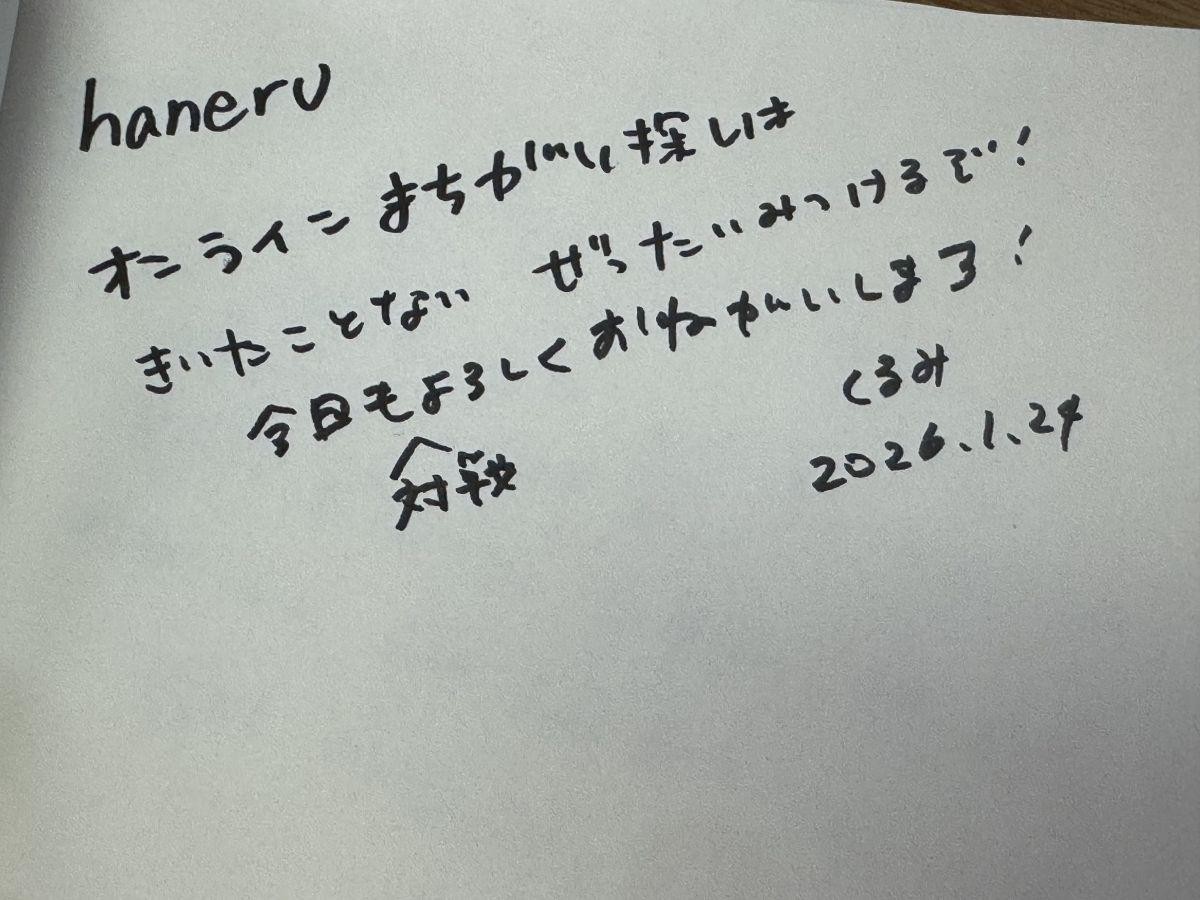 haneru
オンラインまちがい探しは
きいたことない ぜったいみつけるで!
今日もよろしくおねがいします!
対戦
くるみ
2026.1.24